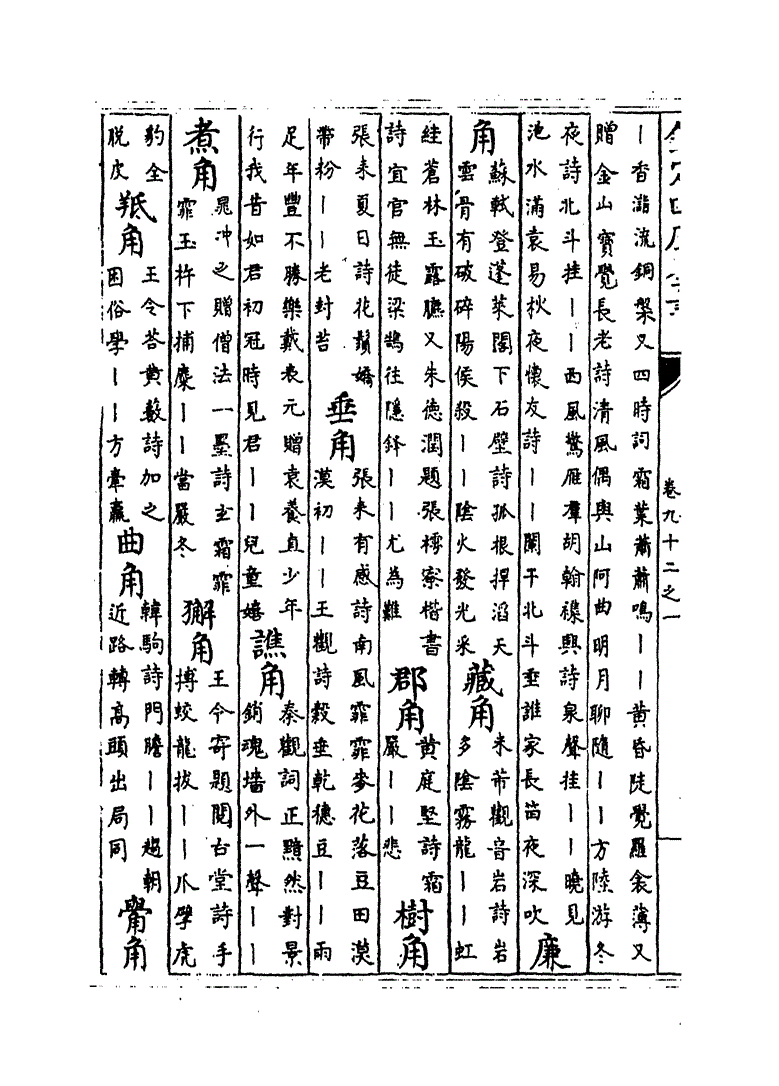 欽定四庫全書
卷九十二之一
丨香濇流銅槃又四時詞霜葉蕭蕭鳴丨丨黃昏陡覺羅衾薄又
贈金山寶覺長老詩清風偶與山阿曲明月聊隨丨丨方陸游冬
夜詩北斗挂丨丨西風驚雁羣胡翰禩興詩泉聲挂丨丨曉見
池水滿袁易秋夜懷友詩丨丨闌干北斗垂誰家長笛夜深吹
廉
角
蘇軾登蓬萊閣下石壁詩孤根捍滔天
雲骨有破碎陽侯殺丨丨陰火發光采
藏角
米芾觀音岩詩岩
多陰霧龍丨丨虹
絓蒼林玉露臕又朱德潤題張樗寮楷書
詩宜官無徒梁鵠往隱鋒丨丨尤為難
郡角
黃庭堅詩霜
嚴丨丨悲
樹角
張耒夏日詩花鬚嬌
帶粉丨丨老封苔
垂角
張耒有感詩南風霏霏麥花落豆田漠
漠初丨丨王觀詩穀垂乾穗豆丨丨雨
足年豐不勝樂戴表元贈袁養直少年
行我昔如君初冠時見君丨丨兒童嬉
譙角
秦觀詞正黯然對景
銷魂墻外一聲丨丨
煮角
晁冲之贈僧法一墨詩玄霜霏
霏玉杵下捕麋丨丨當嚴冬
獬角
王令寄題閱古堂詩手
搏蛟龍拔丨丨爪擘虎
豹全
脱皮
羝角
王令答黃藪詩加之
困俗學丨丨方牽羸
曲角
韓駒詩門膽丨丨趨朝
近路轉高頭出局同
角